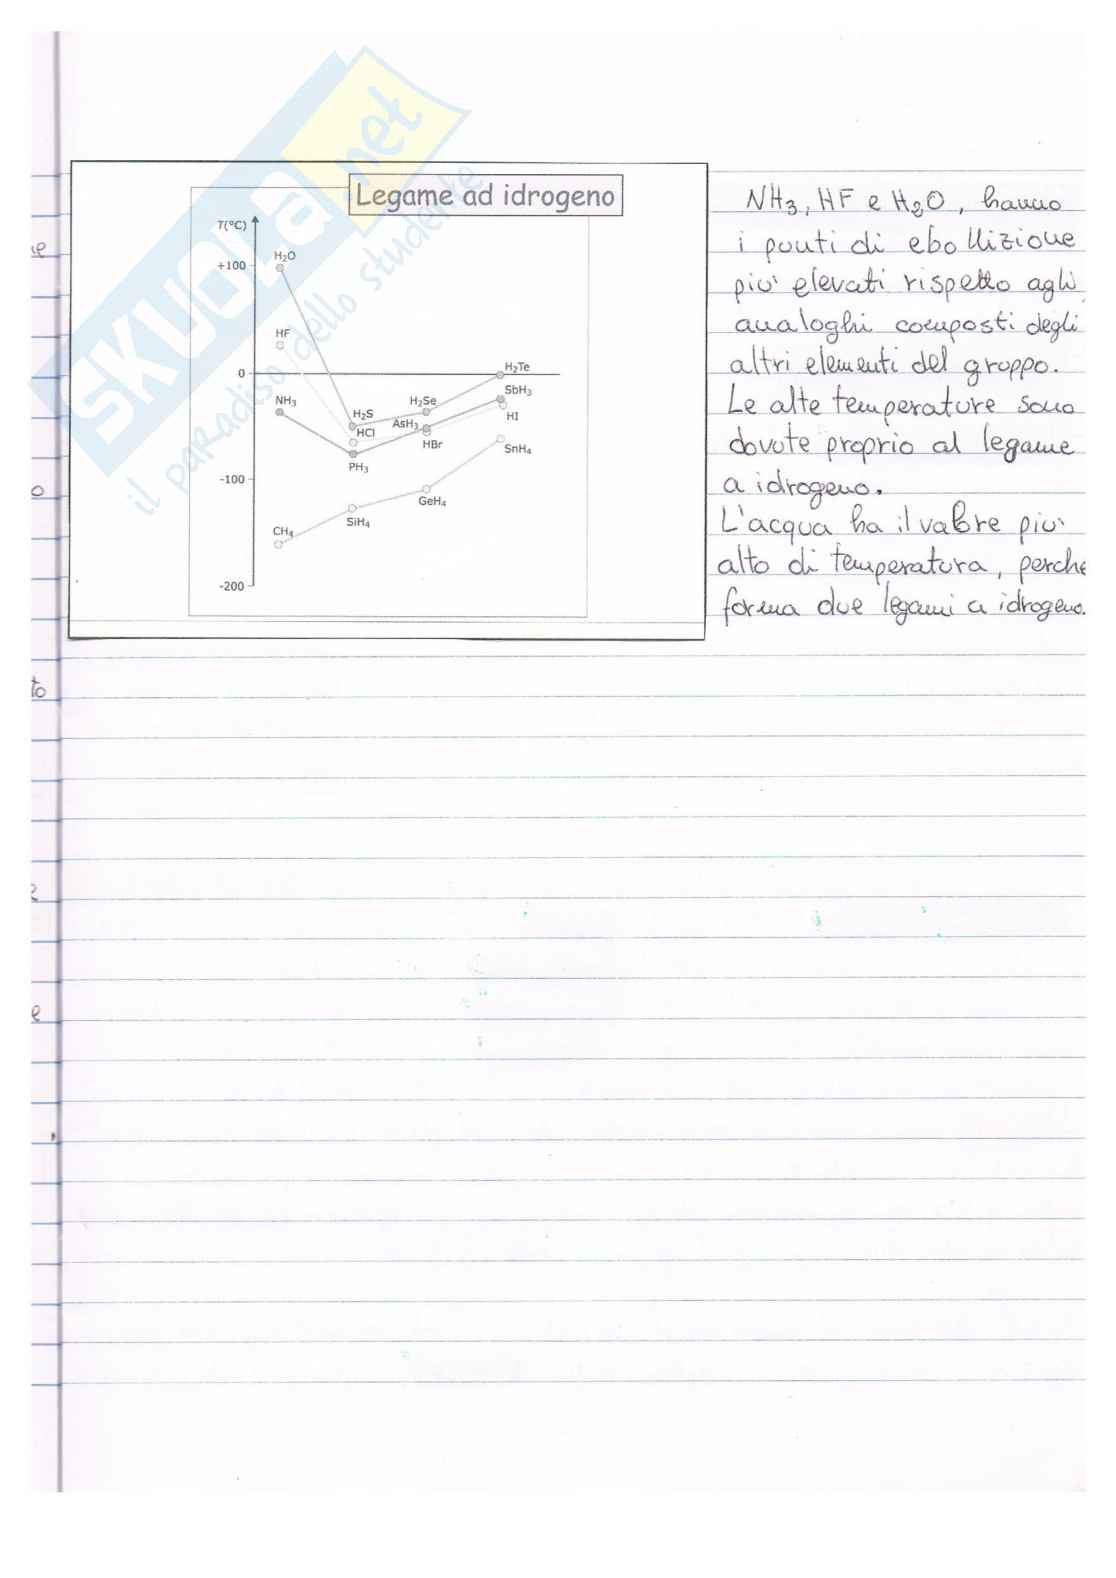 SKUOLA.net
il paradiso dello studente
Legame ad idrogeno
T(°C)
+100
0
-100
-200
H₂O
HF
NH₃
CH₄
H₂S
HCl
PH₃
SiH₄
H₂Se
AsH₃
HBr
GeH₄
H₂Te
SbH₃
HI
SnH₄
NH₃, HF e H₂O, hanno
i punti di ebollizione
piu' elevati rispetto agli
analoghi composti degli
altri elementi del gruppo.
Le alte temperature sono
dovute proprio al legame
a idrogeno.
L'acqua ha il valore piu'
alto di temperatura, perche
forma due legami a idrogeno.
o
to
e